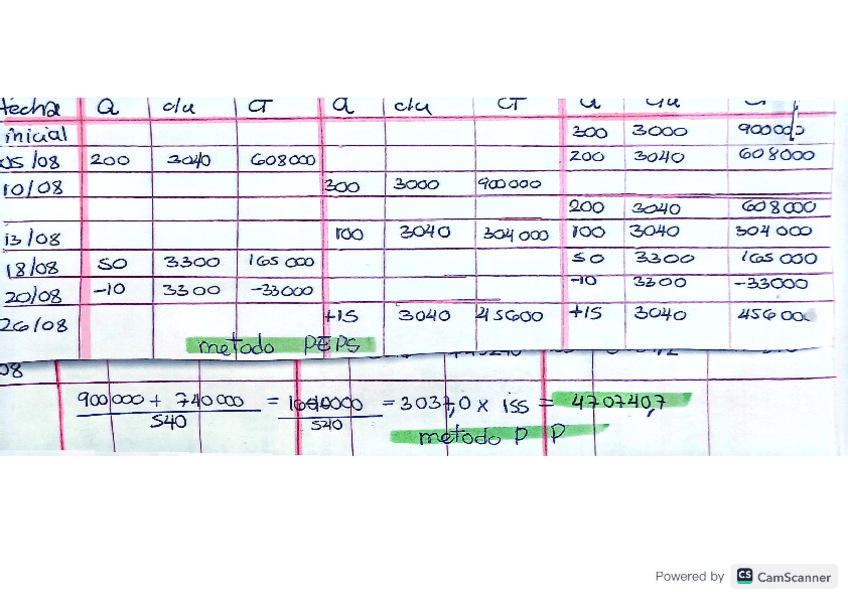 fecha Q c/u CT Q c/u CT
inicial 300 3000 900000
05/08 200 3040 608000 200 3040 608000
10/08 300 3000 900000
200 3040 608000
13/08 100 3040 304000 100 3040 304000
18/08 50 3300 165000 50 3300 165000
20/08 -10 3300 -33000 -10 3300 -33000
26/08 +15 3040 45600 +15 3040 45600
metodo PEPS
08
900000 + 740000 = 1640000 = 3037,0 x 155 = 470740,7
540 540
metodo P P
Powered by CS CamScanner